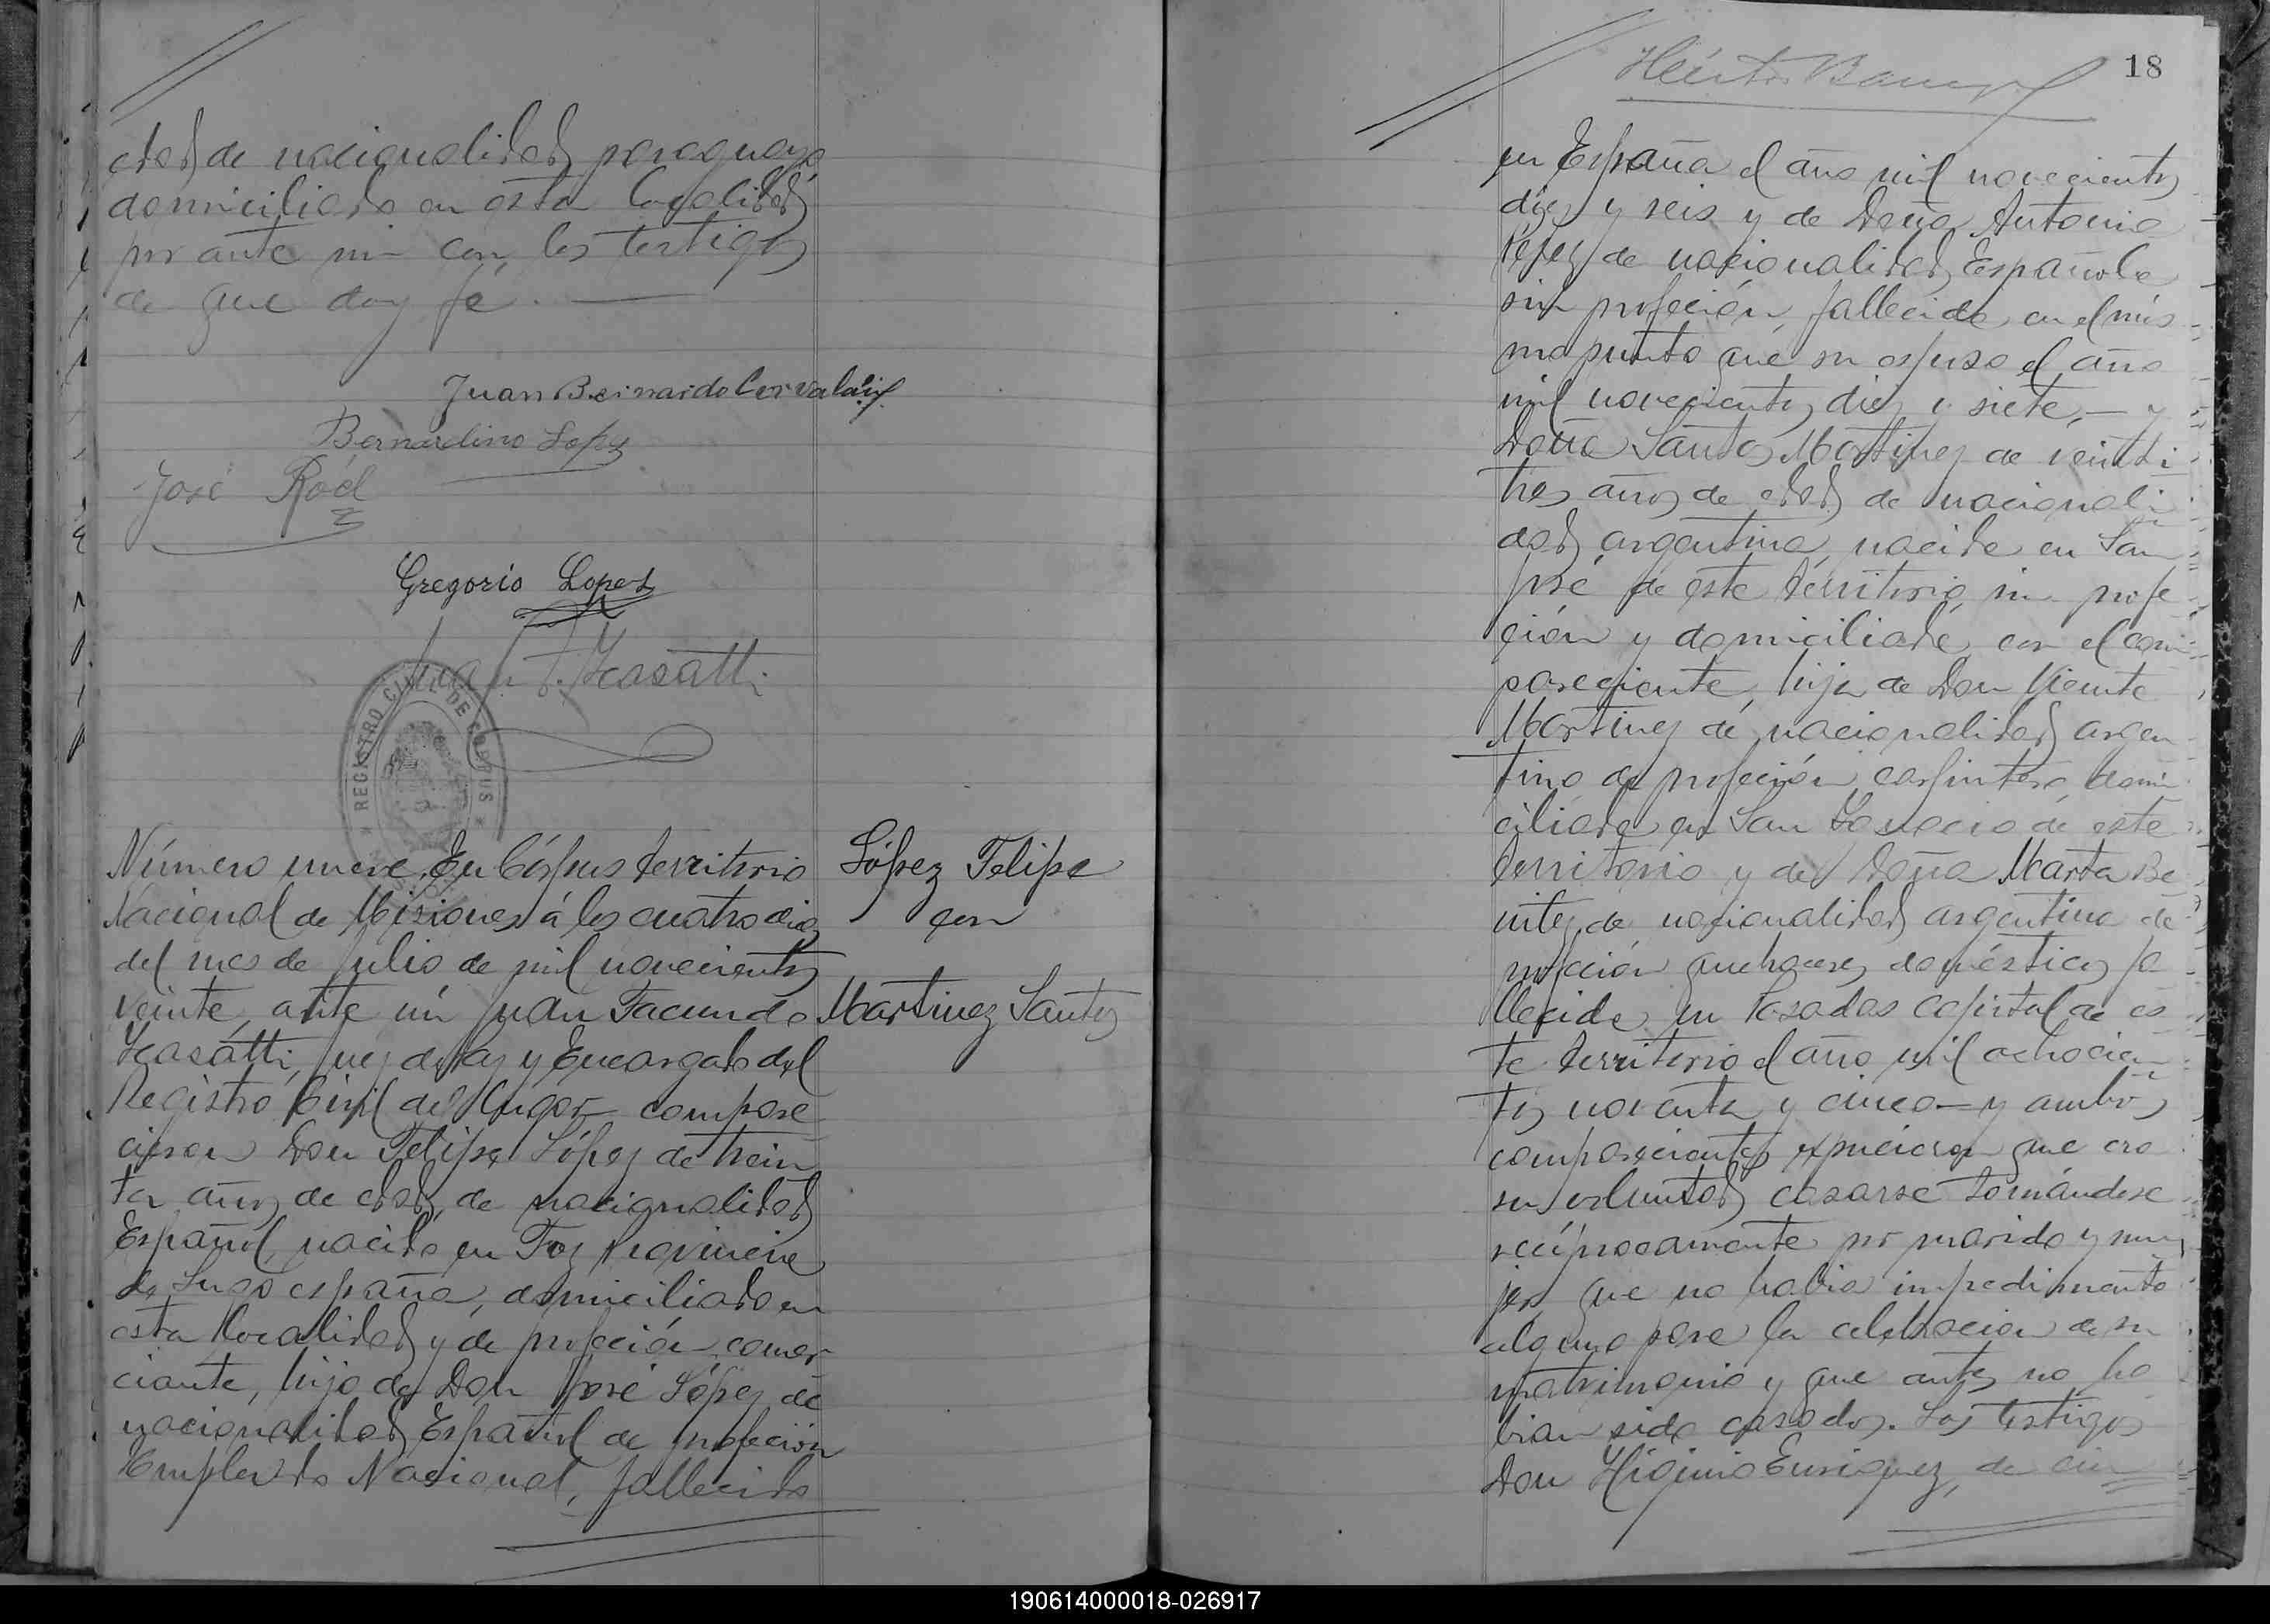 edad de nacionalidad paraguaya
domiciliado en esta localidad
por ante mi con los testigos
de que doy fé.
Juan Bernardo Corvalán
Bernardino Lopez
José Roél
Gregorio Lopes
Juan F.
REGISTRO CIVIL DE CORPUS
Número nueve. En Córpus territorio
Nacional de Misiones á los cuatro dias
del mes de Julio de mil novecientos
veinte, ante mí Juan Facundo
Juez de Paz y Encargado del
Registro Civil del lugar compare
cieron Don Felipe López de trein
ta años de edad, de nacionalidad
Español, nacido en Foz Provincia
de Lugo españa, domiciliado en
esta localidad y de profeción comer
ciante, hijo de Don José López de
nacionalidad Español de profeción
Empleado Nacional, fallecido
López Felipe
con
Martinez Santos
18
en España el año mil novecientos
diez y seis y de Doña Antonia
de nacionalidad Española
sin profeción, fallecida en el mis
mo punto que su esposo el año
mil novecientos diez y siete, — y
Doña Santos Martinez de veinti
tres años de edad, de nacionali
dad argentina, nacida en San
José de este territorio, sin profe
ción y domiciliada con el com
pareciente, hija de Don Vicente
Martinez de nacionalidad argen
tino de profeción carpintero, domi
ciliado en San Ignacio de este
territorio y de Doña Marta Be
nitez de nacionalidad argentina de
profeción quehaceres domésticos fa
llecida en Posadas capital de es
te territorio el año mil ochocien
tos noventa y cinco — y ambos
comparecientes expucieron que era
su voluntad casarse tomándose
recíprocamente por marido y mu
jer, que no habia impedimento
alguno para la celebracion de su
matrimonio y que antes no ha
bian sido casados. Los testigos
Don Higinio Enriquez, de cin
190614000018-026917